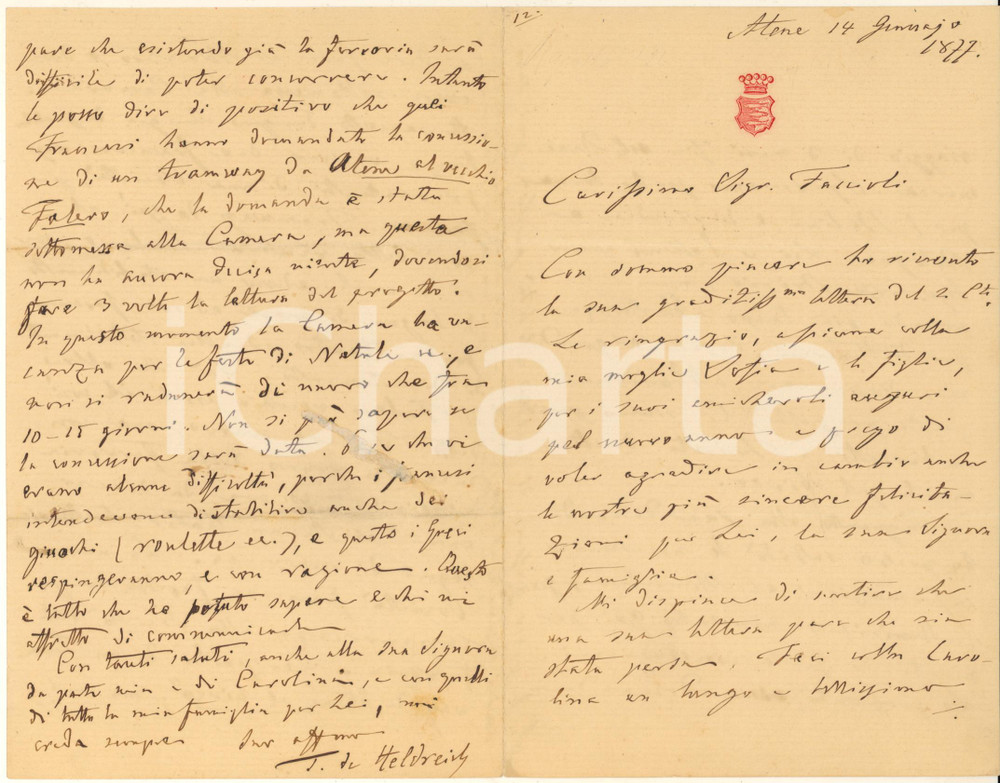 12.
Atene 14 Gennajo
1877.
Carissimo Sigr. Faccioli
Con sommo piacere ho ricevuto
la sua graditissma lettera del 2 Ct.
La ringrazio, assieme colla
mia moglie Sofia e le figlie,
per i suoi amichevoli auguri
pel nuovo anno e prego di
voler agradire in cambio anche
le nostre più sincere felicita-
zioni per Lei, la sua Signora
e famiglia.
Mi dispiace di sentire che
una sua lettera pare che sia
stata persa. Feci colla Caro-
lina un lungo e bellissimo
pare che esistendo già la ferrovia sarà
difficile di poter concorrere. Intanto
le posso dire di positivo che quei
Francesi hanno domandato la concessio-
ne di un tramway da Atene al vecchio
Falero, che la domanda è stata
sottomessa alla Camera, ma questa
non ha ancora deciso niente, dovendosi
fare 3 volte la lettura del progetto.
In questo momento la Camera ha va-
canza per le feste di Natale ec. e
non si radunerà di nuovo che fra
10-15 giorni. Non si può sapere se
la concessione sarà data. che vi
erano alcune difficoltà, perchè i francesi
intendevano di stabilire anche dei
giuochi (roulette ec.), e questo i Greci
respingeranno, e con ragione. Questo
è tutto che ho potuto sapere e che mi
affretto di communicarle
Con tanti saluti, anche alla sua Signora
da parte mia e di Carolina, e con quelli
di tutta la mia famiglia per Lei, mi
creda sempre suo affmo
T. de Heldreich
iCharta